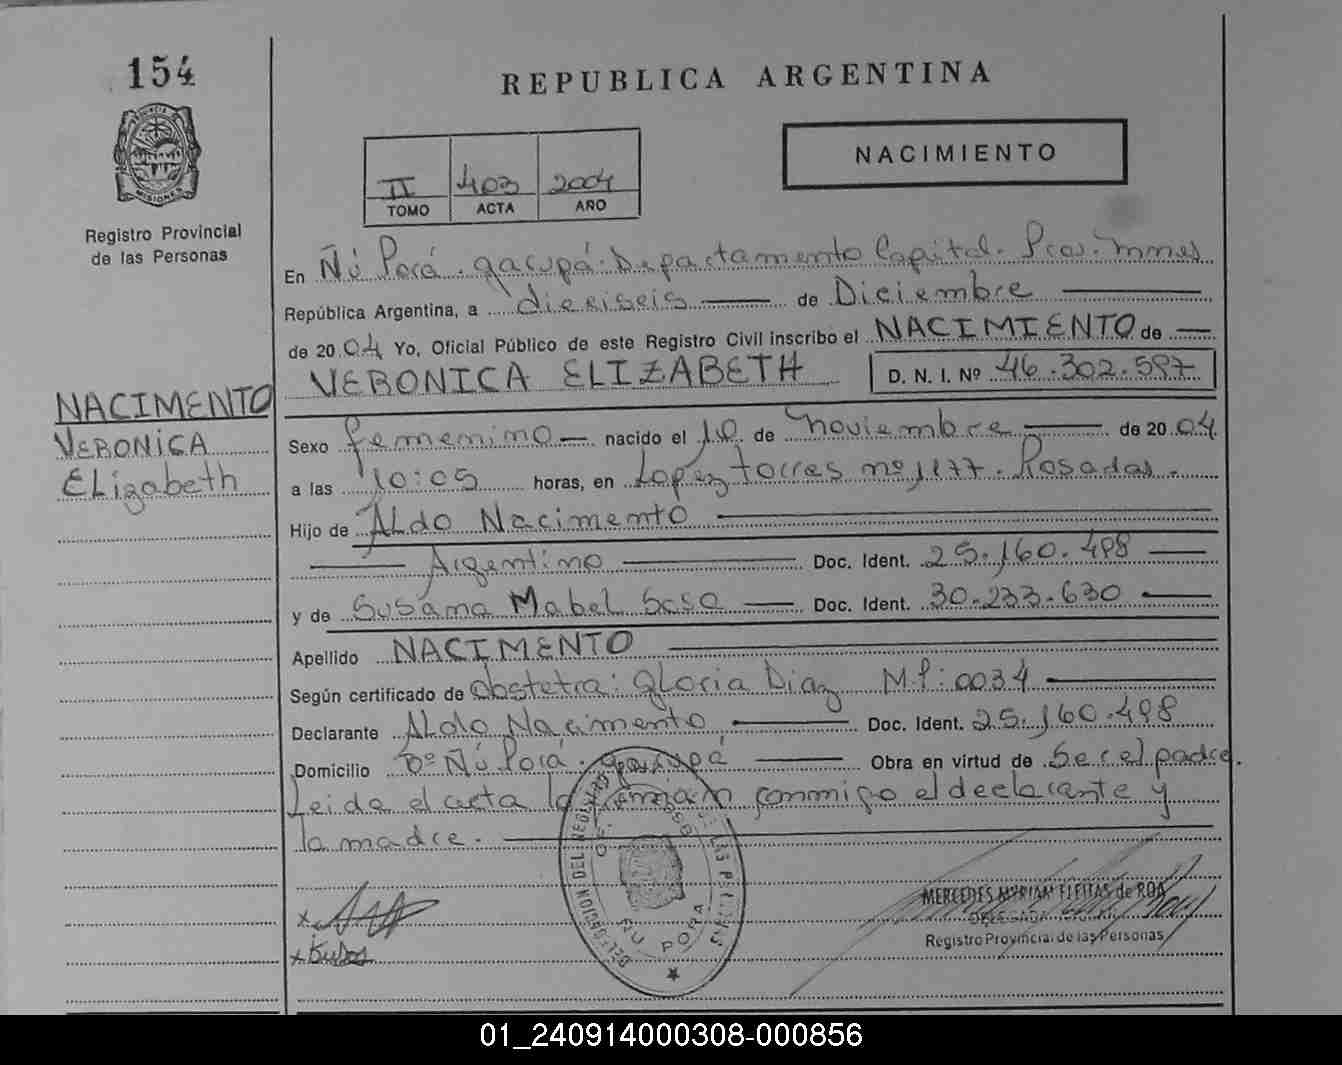 154
REPUBLICA ARGENTINA
NACIMIENTO
PROVINCIA DE
MISIONES
Registro Provincial
de las Personas
II 403 2004
TOMO ACTA AÑO
En Ñú Porá. garupá. Departamento Capital. Prov. Mnes
República Argentina, a dieciseis de Diciembre
de 2004 Yo, Oficial Público de este Registro Civil inscribo el NACIMIENTO de
VERONICA ELIZABETH D. N. I. Nº 46.302.597
NACIMENTO
VERONICA
ELizabeth
Sexo femenino nacido el 10 de noviembre de 2004
a las 10:05 horas, en Lopez torres nº 1177. Posadas.
Hijo de ALdo Nacimento
Argentino Doc. Ident. 25.160.498
y de Susana Mabel Sosa Doc. Ident. 30.233.630
Apellido NACIMENTO
Según certificado de obstetra: gloria Diaz M.P: 0034
Declarante ALdo Nacimento Doc. Ident. 25.160.498
Domicilio Bº Ñú Porá. garupá Obra en virtud de Ser el padre.
Leida el acta la firman conmigo el declarante y
la madre.
DELEGACION DEL REGISTRO DE LAS PERSONAS
ÑU PORA
MERCEDES MYRIAM FLEITAS de ROA
DELEGADA
Registro Provincial de las Personas
01_240914000308-000856